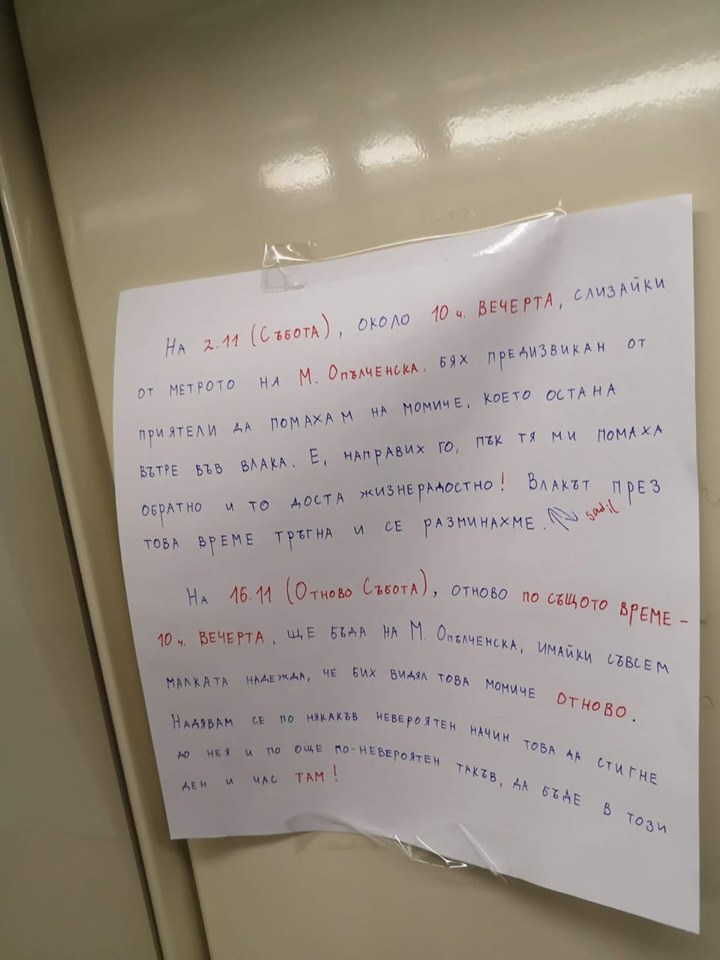 На 2.11 (Събота), около 10 ч. вечерта, слизайки
от метрото на М. Опълченска, бях предизвикан от
приятели да помахам на момиче, което остана
вътре във влака. Е, направих го, пък тя ми помаха
обратно и то доста жизнерадостно! Влакът през
това време тръгна и се разминахме. sad;(
На 16.11 (Отново Събота), отново по същото време -
10 ч. вечерта, ще бъда на М. Опълченска, имайки съвсем
малката надежда, че бих видял това момиче отново.
Надявам се по някакъв невероятен начин това да стигне
до нея и по още по-невероятен такъв, да бъде в този
ден и час там!